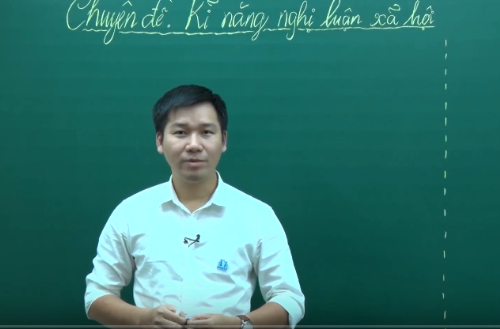 Chuyên đề: Kĩ năng nghị luận xã hội